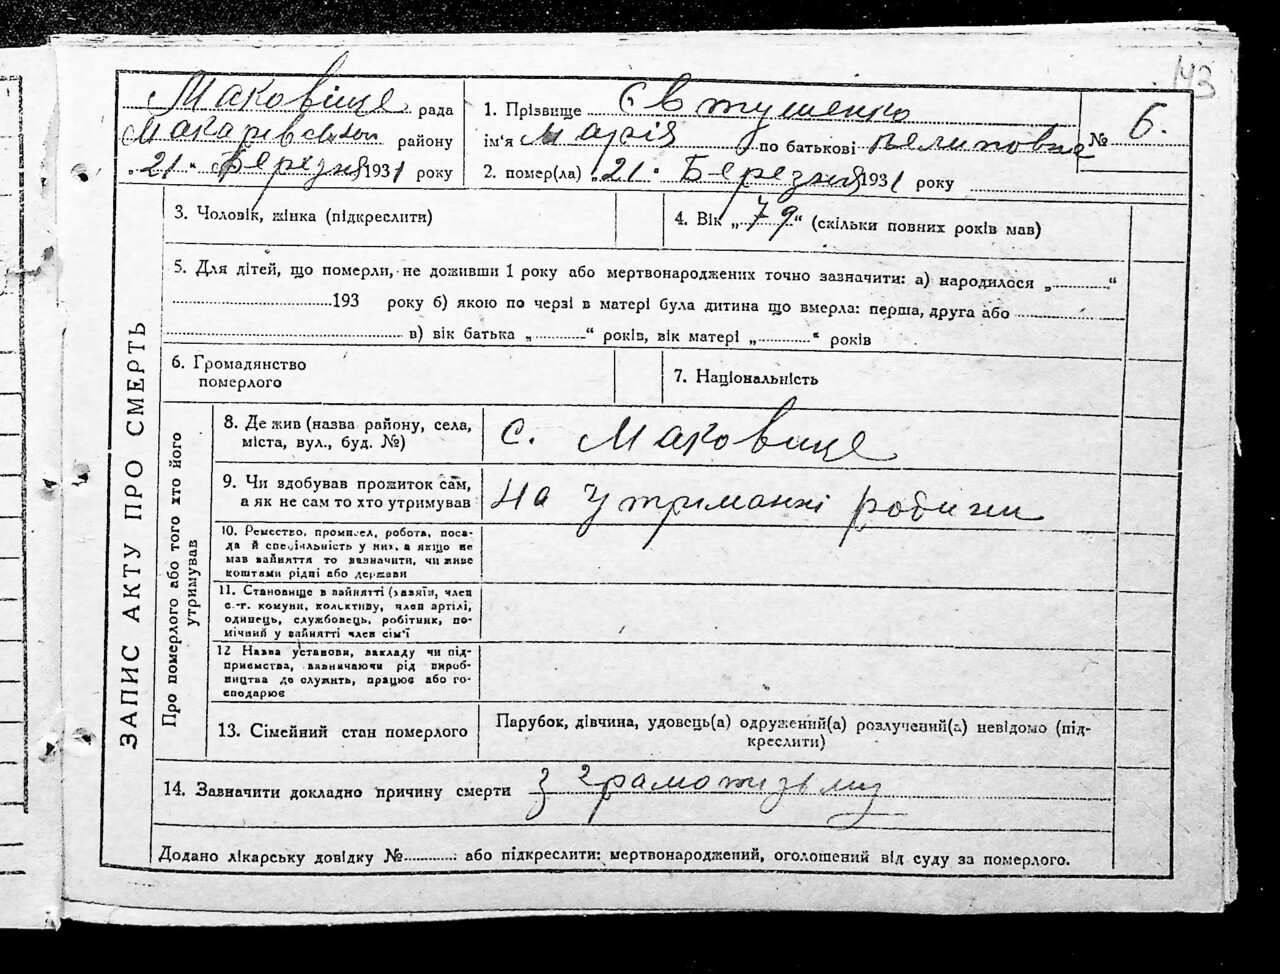 143
Маковище рада
Макарівськ району
„21" Березня 1931 року
1. Прізвище Євтушенко
ім'я Марія по батькові Пелиповна
2. помер(ла) „21" Березня 1931 року
№ 6.
3. Чоловік, жінка (підкреслити)
4. Вік „79" (скільки повних років мав)
5. Для дітей, що померли, не доживши 1 року або мертвонароджених точно зазначити: а) народилося „............"
193 року б) якою по черзі в матері була дитина що вмерла: перша, друга або
в) вік батька „..........." років, вік матері „..........." років
6. Громадянство
померлого
7. Національність
ЗАПИС АКТУ ПРО СМЕРТЬ
Про померлого або того хто його
утримував
8. Де жив (назва району, села,
міста, вул., буд. №)
с. Маковище
9. Чи здобував прожиток сам,
а як не сам то хто утримував
На утриманні родини
10. Ремество, промисел, робота, поса-
да й спеціяльність у них, а якщо не
мав вайняття то вазначити, чи живе
коштами рідні або держави
11. Становище в вайнятті (хавяїн, член
с.-г. комуни, колективу, член артілі,
одинець, службовець, робітник, по-
мічний у вайнятті член сім'ї
12 Назва установи, вакладу чи під-
приємства, вавначаючи рід вироб-
ництва де служить, працює або го-
сподарює
13. Сімейний стан померлого
Парубок, дівчина, удовець(а) одружений(а) розлучений(а) невідомо (під-
креслити)
14. Зазначити докладно причину смерти
Додано лікарську довідку №............: або підкреслити: мертвонароджений, оголошений від суду за померлого.